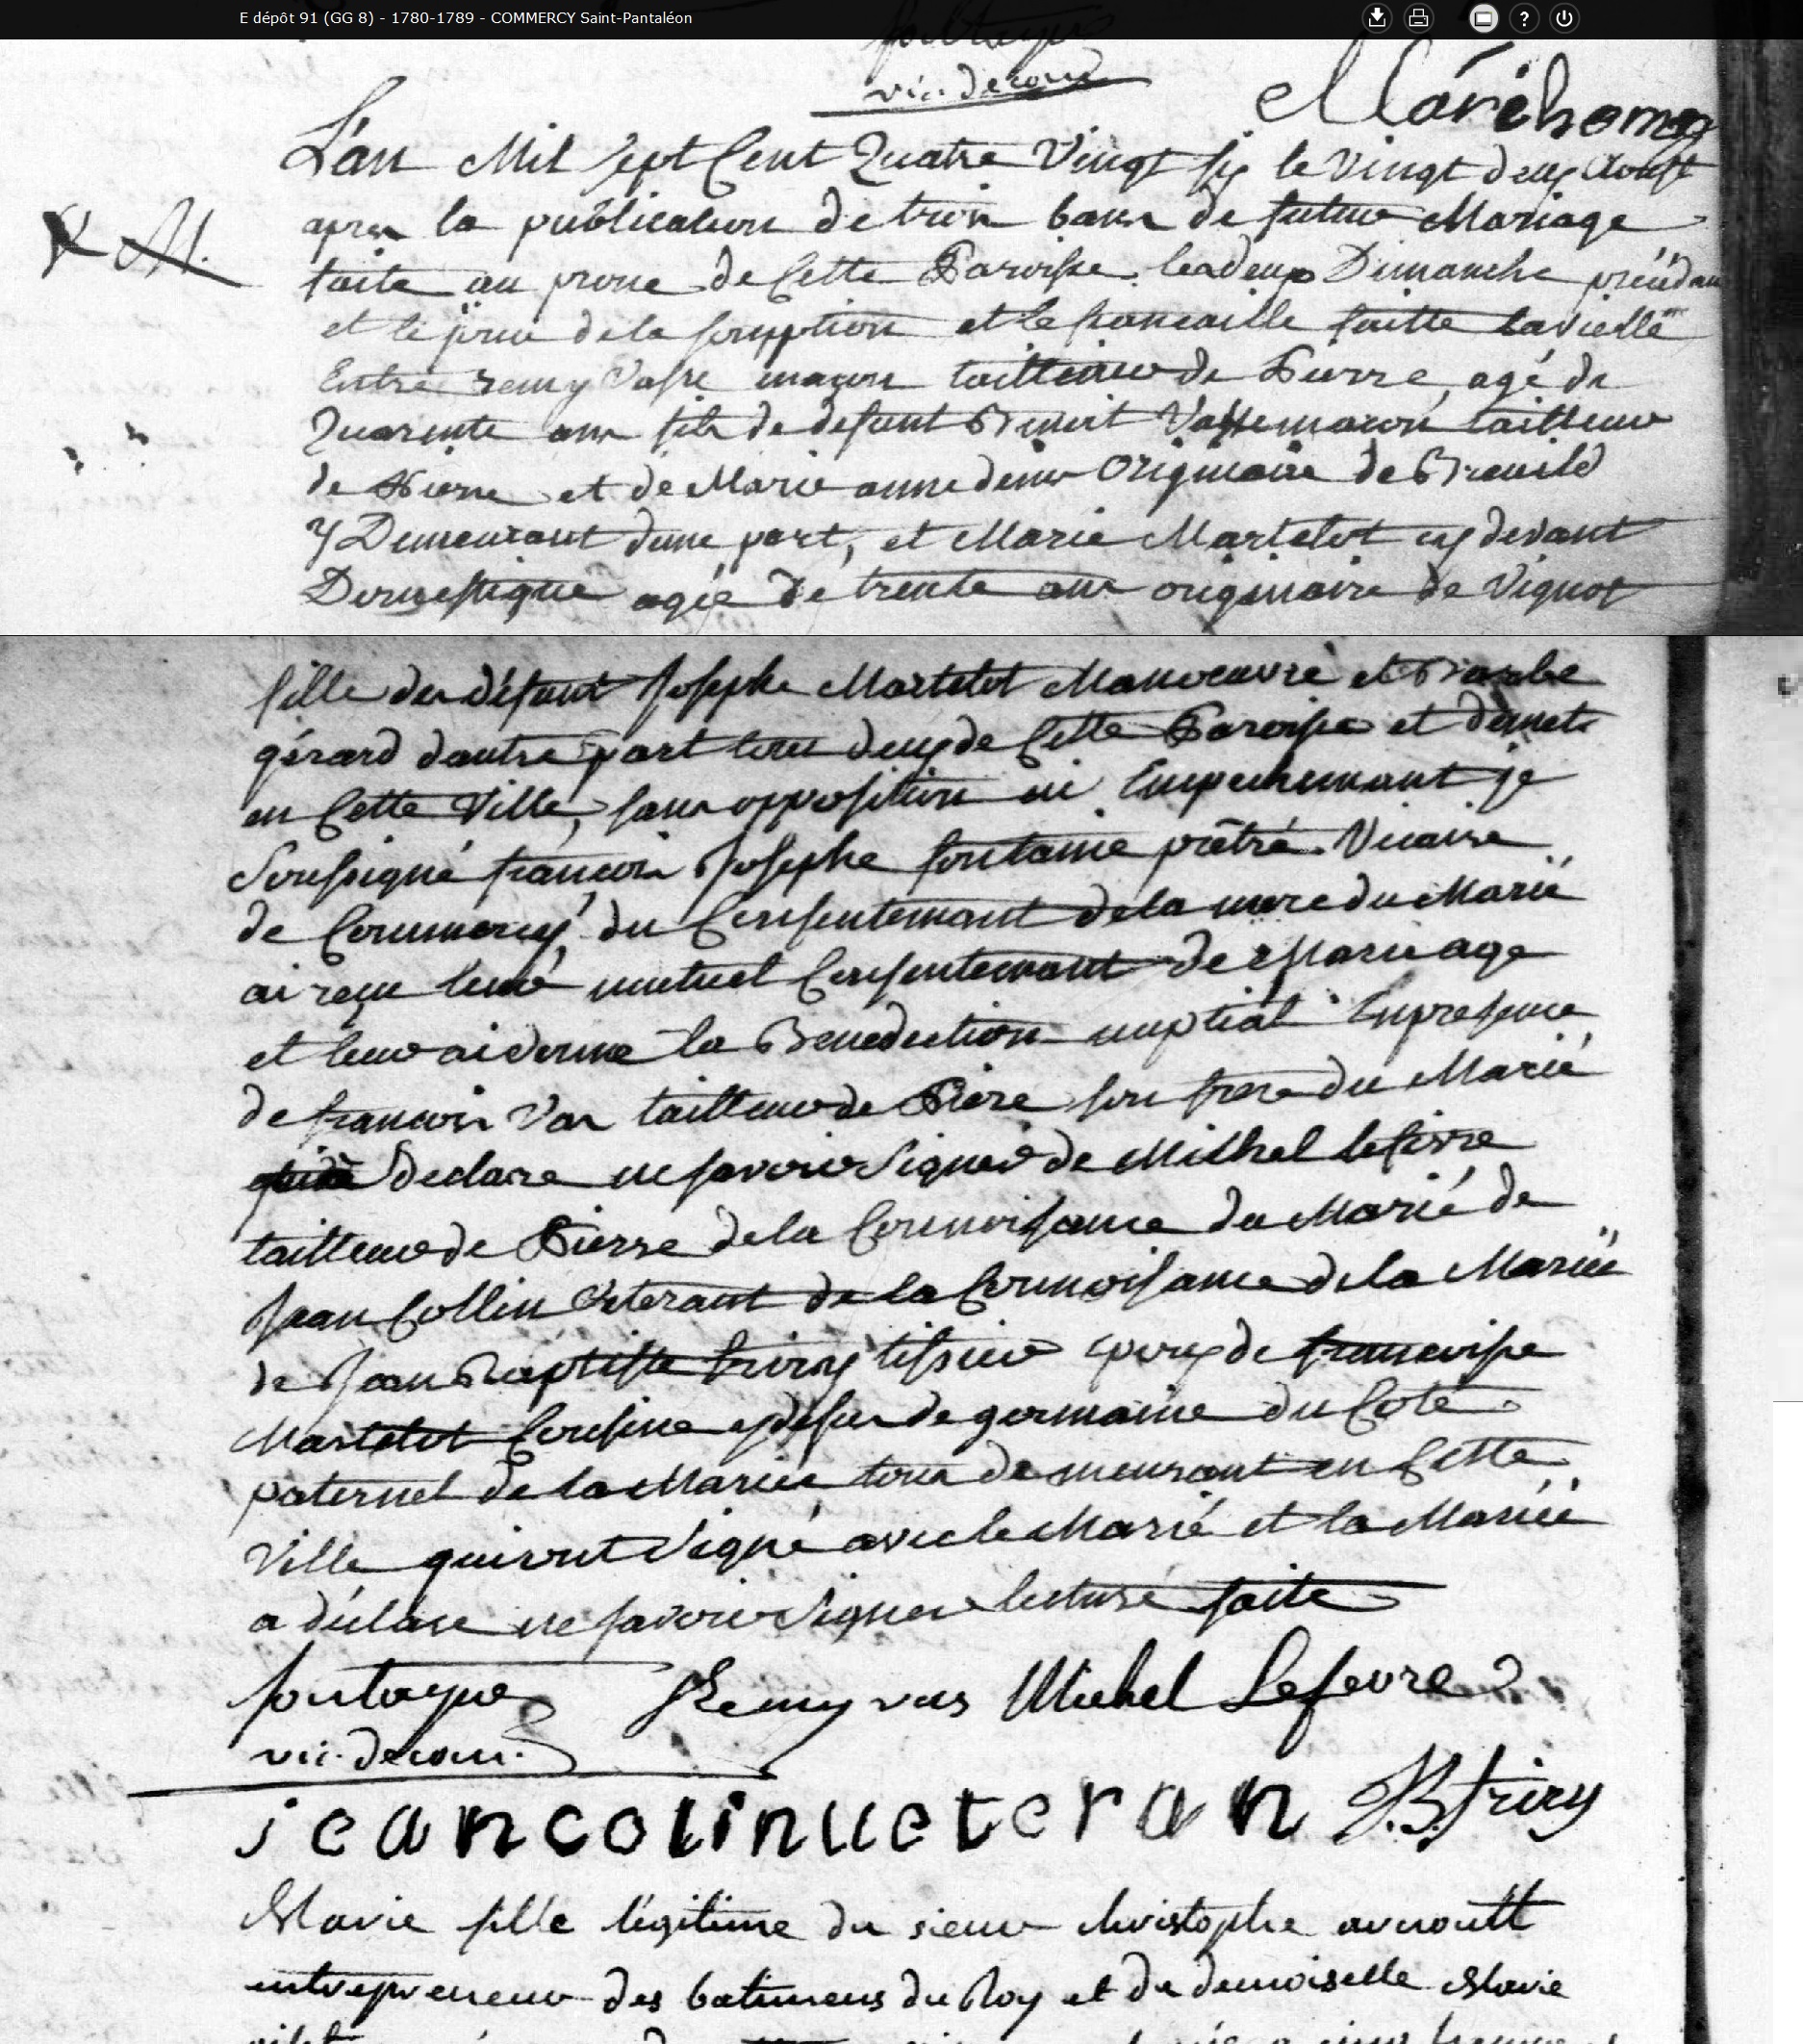 E dépôt 91 (GG 8) - 1780-1789 - COMMERCY Saint-Pantaléon
?
vic. de com
L'an Mil sept Cent Quatre Vingt six le Vingt deux Aoust
M.
apres la publication de trois bans de futur Mariage
faite au prone de Cette Paroisse les deux Dimanche précédan
et le jour de la et le fiancaille faitte la vieille
Entre remy Vasse maçon tailleur de Pierre, agé de
Quarente ans fils de defunt Benoit Vasse macon tailleur
de Pierre et de Marie anne Originaire de
y Demeurant dune part, et Marie Martelot cy devant
Domestique agée de trente ans originaire de Vignot
fille de défunt Josephe Martelot Manoeuvre et Barbe
gérard dautre part tous deux de Cette Paroisse et
en Cette Ville, sans opposition ni Empechemant je
Soussigné francois Josephe fontaine prêtre Vicaire
de Commercy, du Consentemant de la mere du Marié
ai reçu leur mutuel Consentemant de Mariage
et leur ai donne la Benediction nuptial En presence
de francois Vas tailleur de Piere son frere du Marié
declare ne savoir Signer de Milhel lefevre
tailleur de Pierre de la Connoisance du Marié de
Jean Collin Veterant de la Connoisance de la Mariée
de Jean Baptiste friry tissier epoux de francoise
Martelot Cousine de germaine du Coté
paternel de la Mariée tous demeurant en Cette
Ville qui ont Signé avec le Marié et la Mariée
a déclare ne savoir Signer lecture faite
Remy vas Michel Lefevre
vic. de com.
jean colin ueteran J.B. friry
Marie fille légitime du sieur christophe
entrepreneur des batimens du Roy et de demoiselle Marie